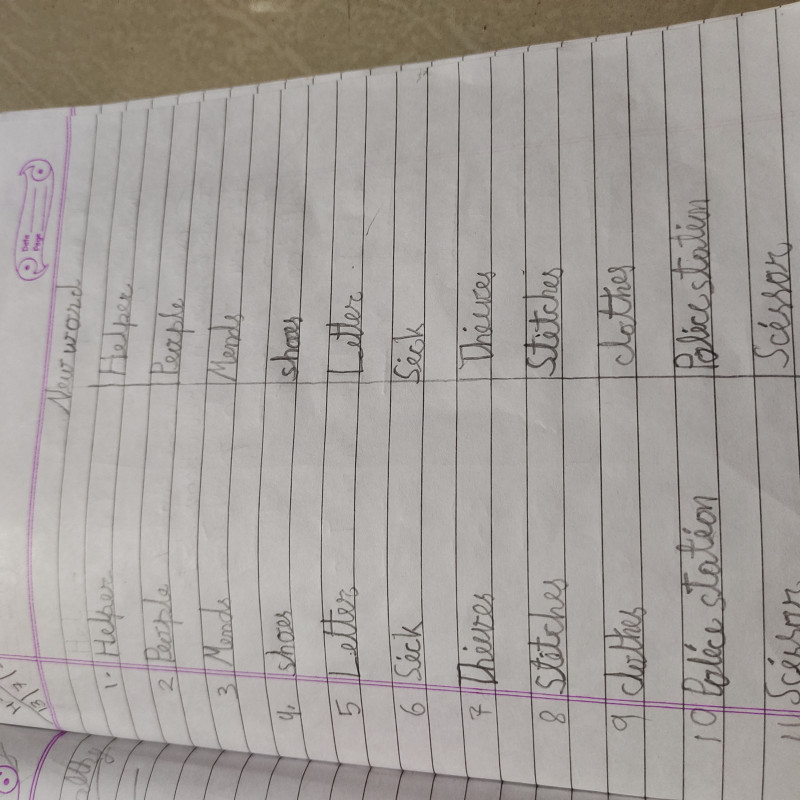 Date
Page
New word
1. Helper Helper
2 People People
3 Mends Mends
4. shoes shoes
5 Letter Letter
6 Sick Sick
7 Thieves Thieves
8 Stitches Stitches
9 clothes clothes
10 Police station Police station
11 Scissor Scissor